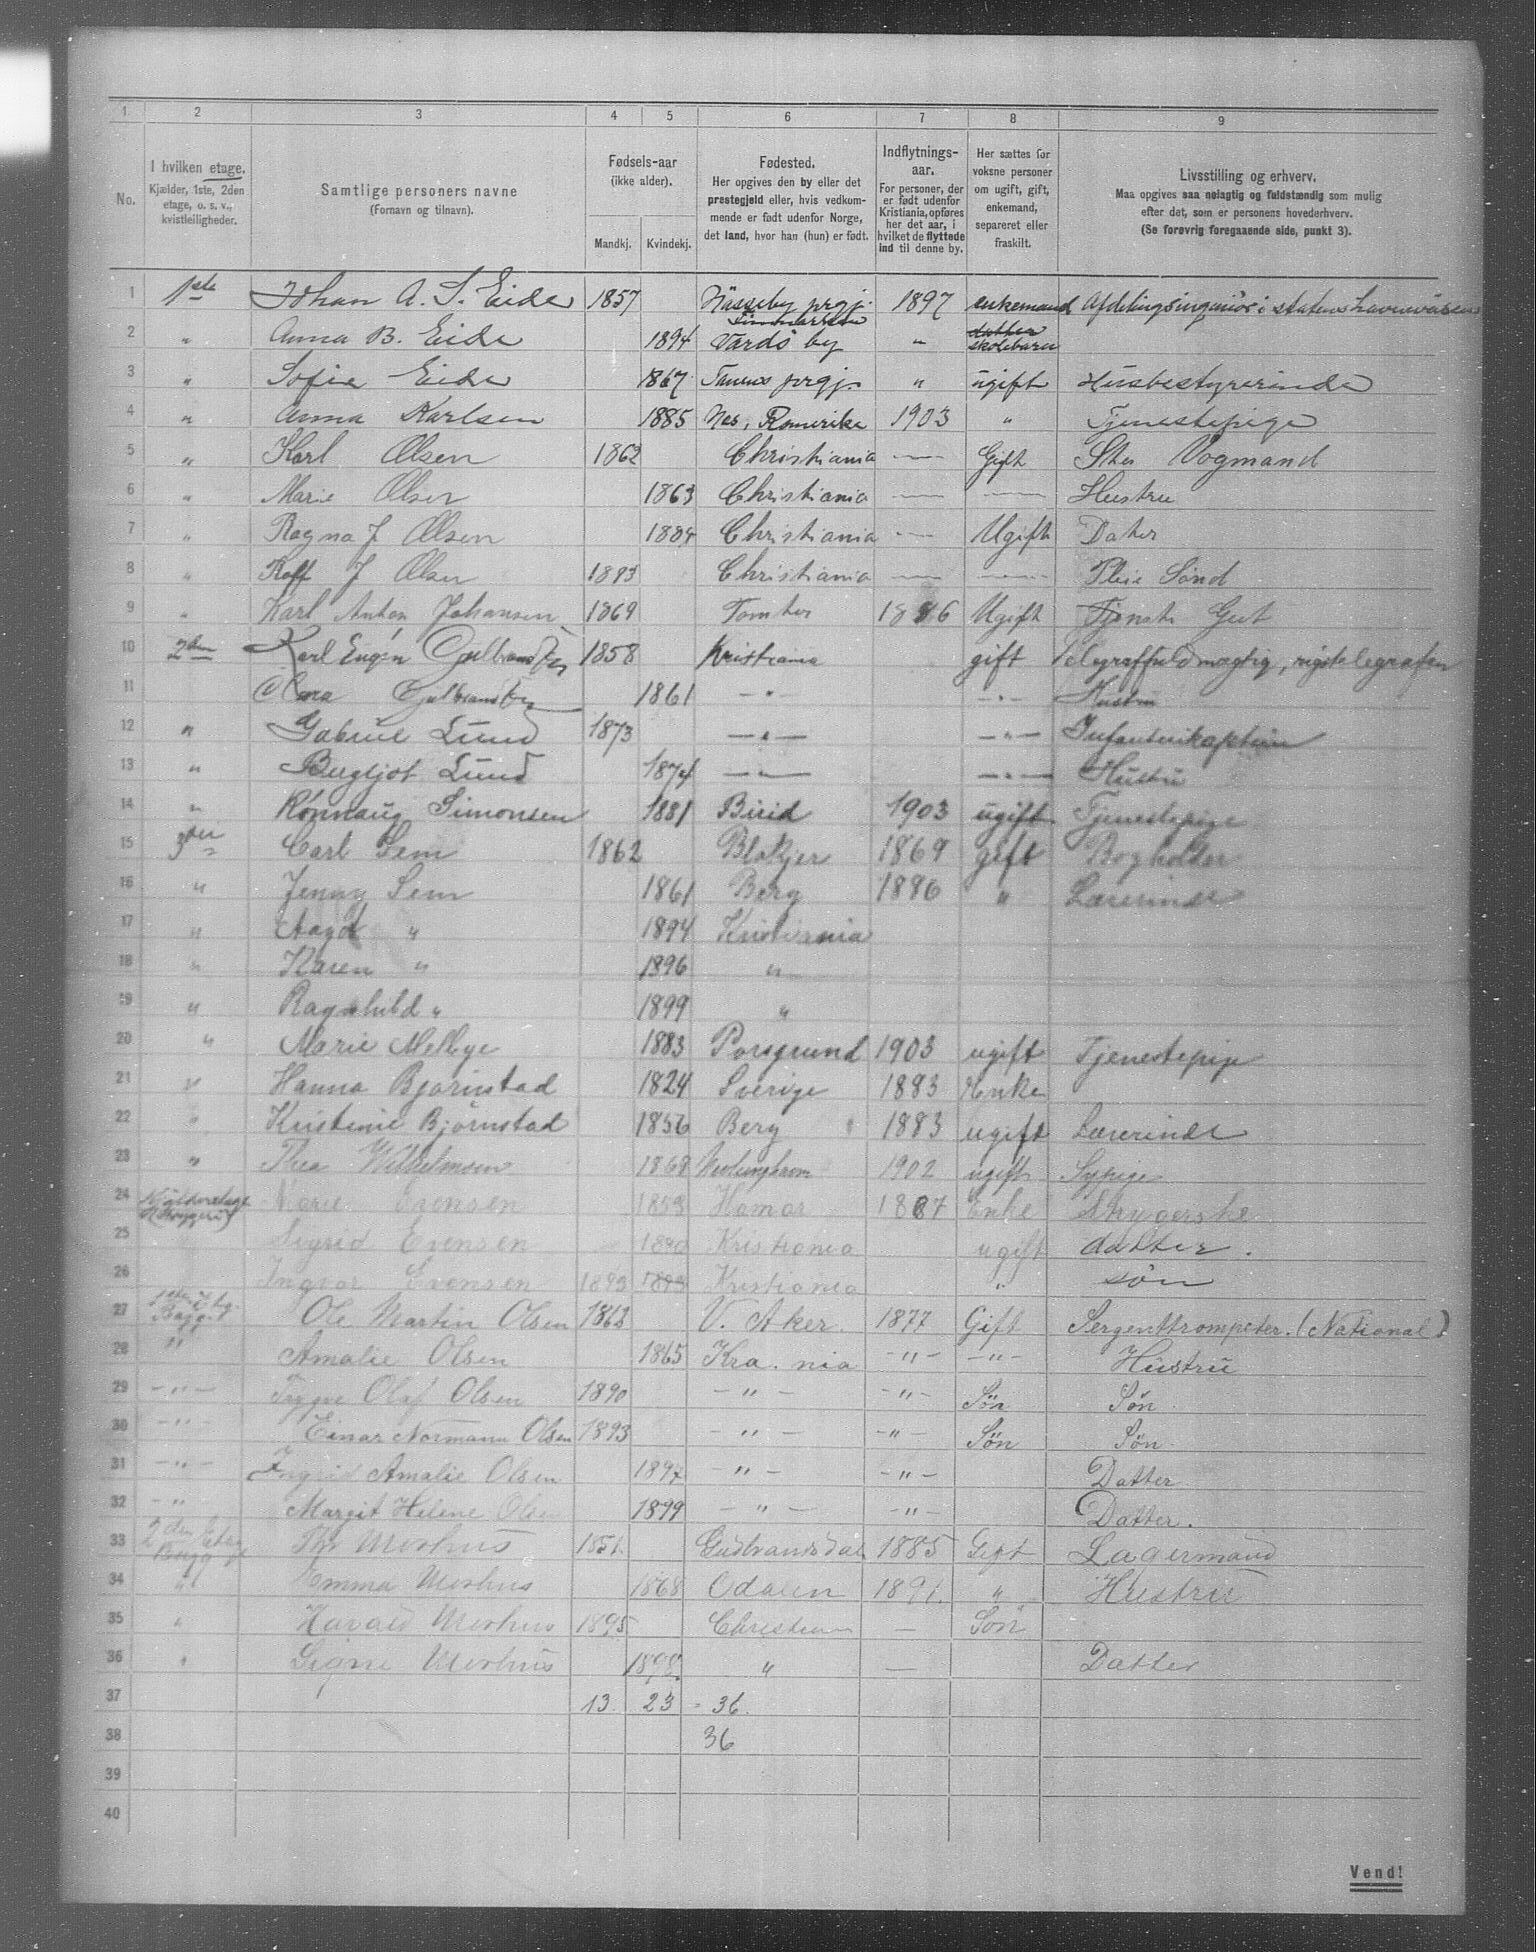 1 2 3 4 5 6 7 8 9
No. I hvilken etage. Kjælder, 1ste, 2den etage, o. s. v., kvistleiligheder. Samtlige personers navne (Fornavn og tilnavn). Fødsels-aar (ikke alder). Mandkj. Kvindekj. Fødested. Her opgives den by eller det prestegjeld eller, hvis vedkommende er født udenfor Norge, det land, hvor han (hun) er født. Indflytnings-aar. For personer, der er født udenfor Kristiania, opføres her det aar, i hvilket de flyttede ind til denne by. Her sættes for voksne personer om ugift, gift, enkemand, separeret eller fraskilt. Livsstilling og erhverv. Maa opgives saa nøiagtig og fuldstændig som mulig efter det, som er personens hovederhverv. (Se forøvrig foregaaende side, punkt 3).
1 1ste Johan A. S. Eide 1857 Næsseby prgj. Finmarken 1897 enkemand Afdelingsingeniør i statens havnevæsen
2 " Anna B. Eide 1894 Vardö by " datter skolebarn
3 " Sofie Eide 1867 Tanens prgj. " ugift Husbestyrerinde
4 " Anna Karlsen 1885 Nes, Romerike 1903 " Tjenestepige
5 " Karl Olsen 1862 Christiania — Gift Vogmand
6 " Marie Olsen 1863 Christiania — — Hustru
7 " Ragna J Olsen 1884 Christiania — Ugift Dater
8 " Rolf J Olsen 1893 Christiania — — Sönd
9 " Karl Anton Johansen 1869 Tomter 1886 Ugift Tjenste Gut
10 2den Karl Eugen Gulbrandsen 1858 Kristiania gift Telegraffuldmægtig, rigstelegrafen
11 Clara Gulbrandsen 1861 - " - - " - Hustru
12 " Gabriel Lund 1873 - " - - " - Infanterikaptein
13 " Bergljot Lund 1874 - - " - Hustru
14 " Rønnaug Simonsen 1881 Birid 1903 ugift Tjenestepige
15 3die Carl Sem 1862 Blakjer 1869 gift Bogholder
16 " Jenny Sem 1861 Berg 1886 " Lærerinde
17 " Aagot " 1894 Kristiania
18 " Karen " 1896 "
19 " Ragnhild " 1899 "
20 " Marie Melbye 1883 Porsgrund 1903 ugift Tjenestepige
21 " Hanna Bjørnstad 1824 Sverige 1883 Enke
22 " Kristine Bjørnstad 1856 Berg 1883 ugift Lærerinde
23 " Thea Wilhelmsen 1868 1902 ugift Sypige
24 Kjælderetage Marie Evensen 1859 Hamar 1887 Enke Strygerske
25 Sigrid Evensen 1890 Kristiania ugift datter.
26 Ingvar Evensen 1893 1893 Kristiania " søn
27 1sten Etg. Bagg. Ole Martin Olsen 1862 V. Aker. 1877 Gift Sergenttrompeter. (National)
28 " Amalie Olsen 1865 Kra.nia - " - - " - Hustru
29 - " - Trygve Olaf Olsen 1890 - " - - " - Søn Søn
30 - " - Einar Normann Olsen 1893 - " - - " - Søn Søn.
31 - " - Ingrid Amalie Olsen 1897 - " - - " - Datter
32 - " Margit Helene Olsen 1899 - " - - " - Datter.
33 2den Etag Bagg Morhus 1851 Gudbransdal 1885 Gift Lagermand
34 " Emma Morhus 1868 Odalen 1891. " Hustru
35 " Harald Morhus 1895 — Søn
36 " Signe Morhus 1898. " — Datter
37 13. 23 - 36.
38 36
39
40
Vend!